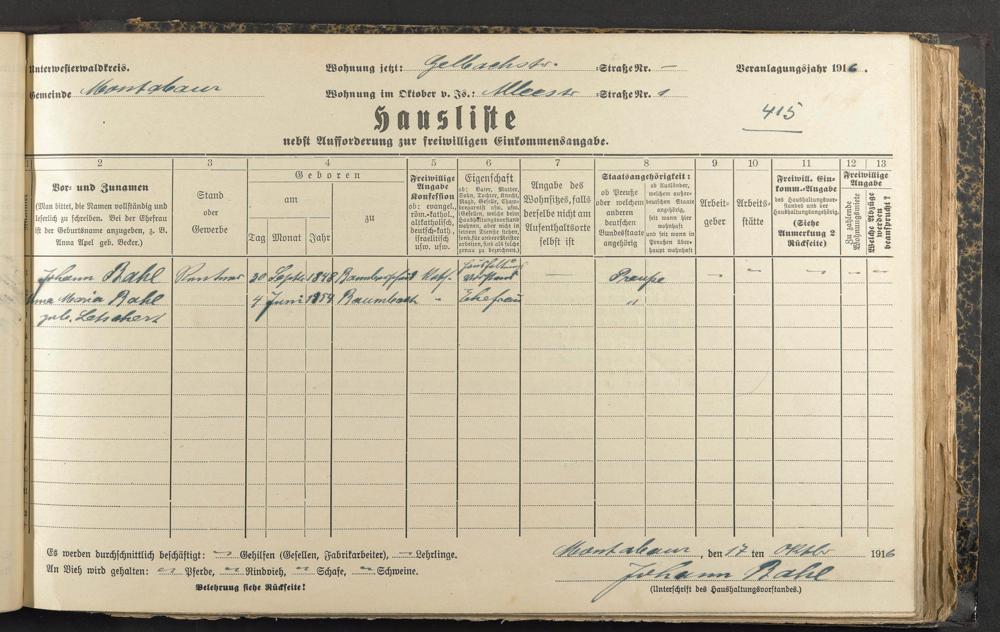 Unterwesterwaldkreis. Wohnung jetzt: Gelbachstr. Straße Nr. — Veranlagungsjahr 1916.
Gemeinde Montabaur Wohnung im Oktober v. Js.: Alleestr Straße Nr. 1
415
Hausliste
nebst Aufforderung zur freiwilligen Einkommensangabe.
2 3 4 5 6 7 8 9 10 11 12 13
Vor- und Zunamen
(Man bittet, die Namen vollständig und
leserlich zu schreiben. Bei der Ehefrau
ist der Geburtsname anzugeben, z. B.
Anna Apel geb. Becker.)
Stand
oder
Gewerbe
Geboren
am
zu
Tag Monat Jahr
Freiwillige
Angabe
Konfession
ob: evangel.,
röm.-kathol.,
altkatholisch,
deutsch-kath.,
israelitisch
usw. usw.
Eigenschaft
ob: Vater, Mutter,
Sohn, Tochter, Knecht,
Magd, Geselle,
Angabe des
Wohnsitzes, falls
derselbe nicht am
Aufenthaltsorte
selbst ist
Staatsangehörigkeit:
ob Preuße
oder welchem
anderen
deutschen
Bundesstaate
angehörig
ob Ausländer,
welchem außer-
deutschen Staate
angehörig,
seit wann hier
wohnhaft
und seit wann in
Preußen über-
haupt wohnhaft
Arbeit-
geber
Arbeits-
stätte
Freiwill. Ein-
komm.-Angabe
des Haushaltungsvor-
standes und der
Haushaltungsangehörig.
(Siehe
Anmerkung 2
Rückseite)
Freiwillige
Angabe
Zu zahlende
Wohnungsmiete
Welche Abzüge
werden
beansprucht?
Johann Bahl Rentner 30 Sept. 1848 Kath. Haushaltungs
vorstand — Preuße — — — — —
Maria Bahl 4 Juni Baumbach " Ehefrau "
geb. Letschert
Es werden durchschnittlich beschäftigt: — Gehilfen (Gesellen, Fabrikarbeiter), — Lehrlinge.
An Vieh wird gehalten: — Pferde, — Rindvieh, — Schafe, — Schweine.
Belehrung siehe Rückseite!
Montabaur, den 17 ten Oktbr 1916
Johann Bahl
(Unterschrift des Haushaltungsvorstandes.)